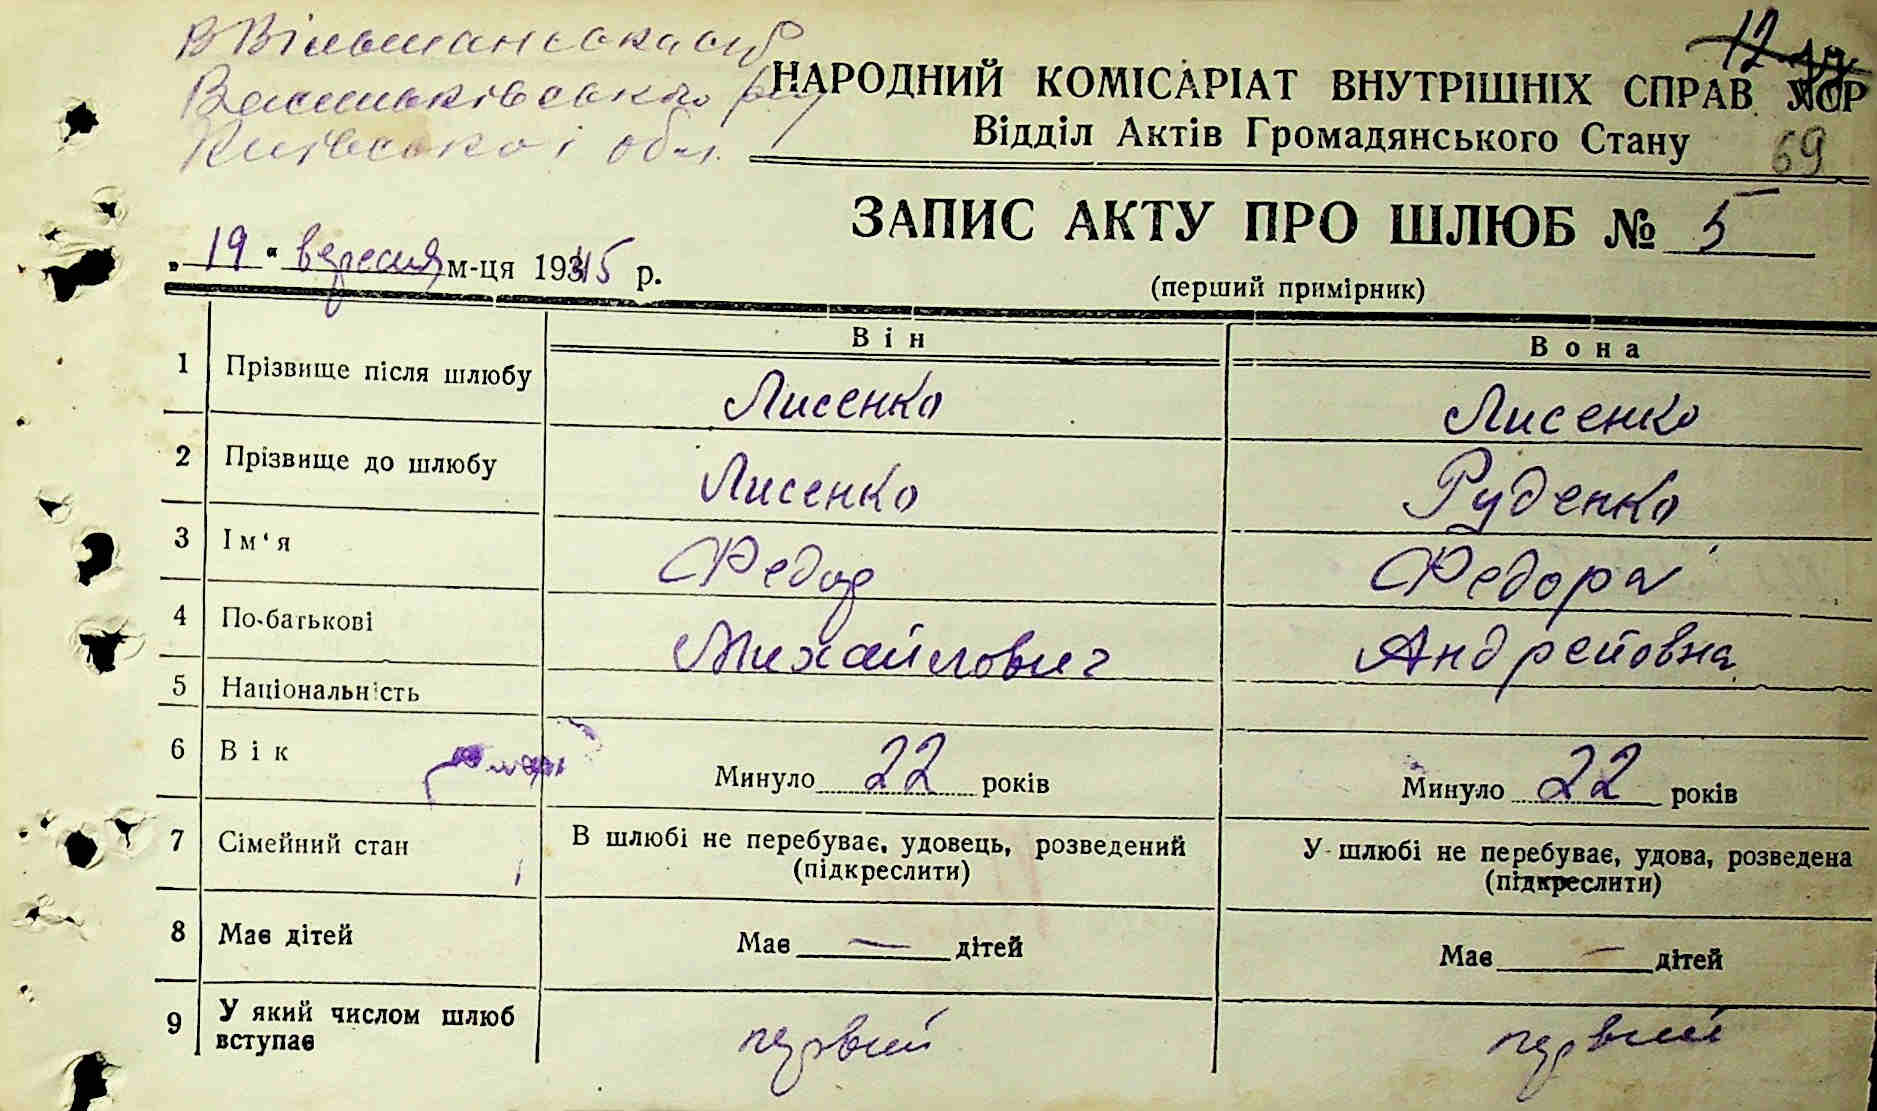 В Вільшанська с/р
Васильківського р-ну
Київської обл.
12
НАРОДНИЙ КОМІСАРІАТ ВНУТРІШНІХ СПРАВ УСРР
Відділ Актів Громадянського Стану
69
ЗАПИС АКТУ ПРО ШЛЮБ № 5
„19“ вересня м-ця 1945 р.
(перший примірник)
Він Вона
1 Прізвище після шлюбу Лисенко Лисенко
2 Прізвище до шлюбу Лисенко Руденко
3 Ім'я Федор Федора
4 По-батькові Михайлович Андрейовна
5 Національність
6 Вік Минуло 22 років Минуло 22 років
7 Сімейний стан В шлюбі не перебуває, удовець, розведений У шлюбі не перебуває, удова, розведена
(підкреслити) (підкреслити)
8 Має дітей Має — дітей Має — дітей
9 У який числом шлюб
вступає первий первий